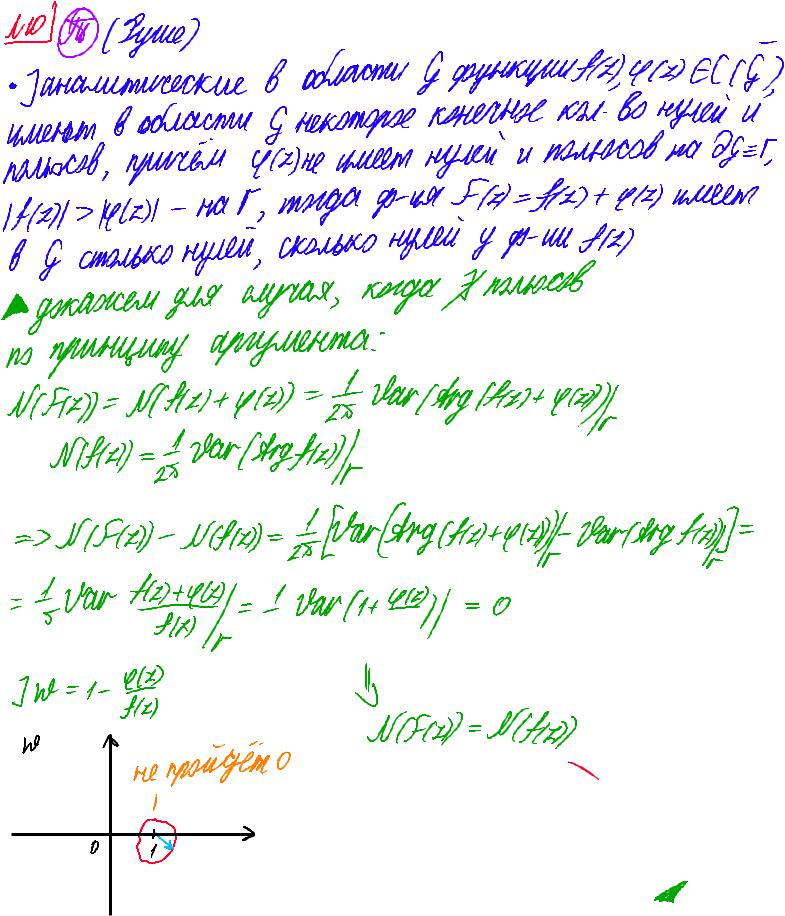 №10 Th (Руше)
• ] аналитические в области G функции f(z), φ(z) ∈ C(G̅),
имеют в области G некоторое конечное кол-во нулей и
полюсов, причём φ(z) не имеет нулей и полюсов на ∂G≡Γ,
|f(z)| > |φ(z)| – на Γ, тогда ф-ия F(z) = f(z) + φ(z) имеет
в G столько нулей, сколько нулей у ф-ии f(z)
▲ докажем для случая, когда ∄ полюсов
по принципу аргумента:
N(F(z)) = N(f(z) + φ(z)) = 1/2π Var(Arg(f(z) + φ(z)))|_Γ
N(f(z)) = 1/2π Var(Arg f(z))|_Γ
=> N(F(z)) – N(f(z)) = 1/2π [Var(Arg(f(z) + φ(z)))|_Γ – Var(Arg f(z))|_Γ] =
= 1/π Var (f(z) + φ(z))/f(z) |_Γ = 1 Var(1 + φ(z))| = 0
] w = 1 – φ(z)/f(z)
⇓
N(F(z)) = N(f(z))
w
не пройдёт 0
0 1